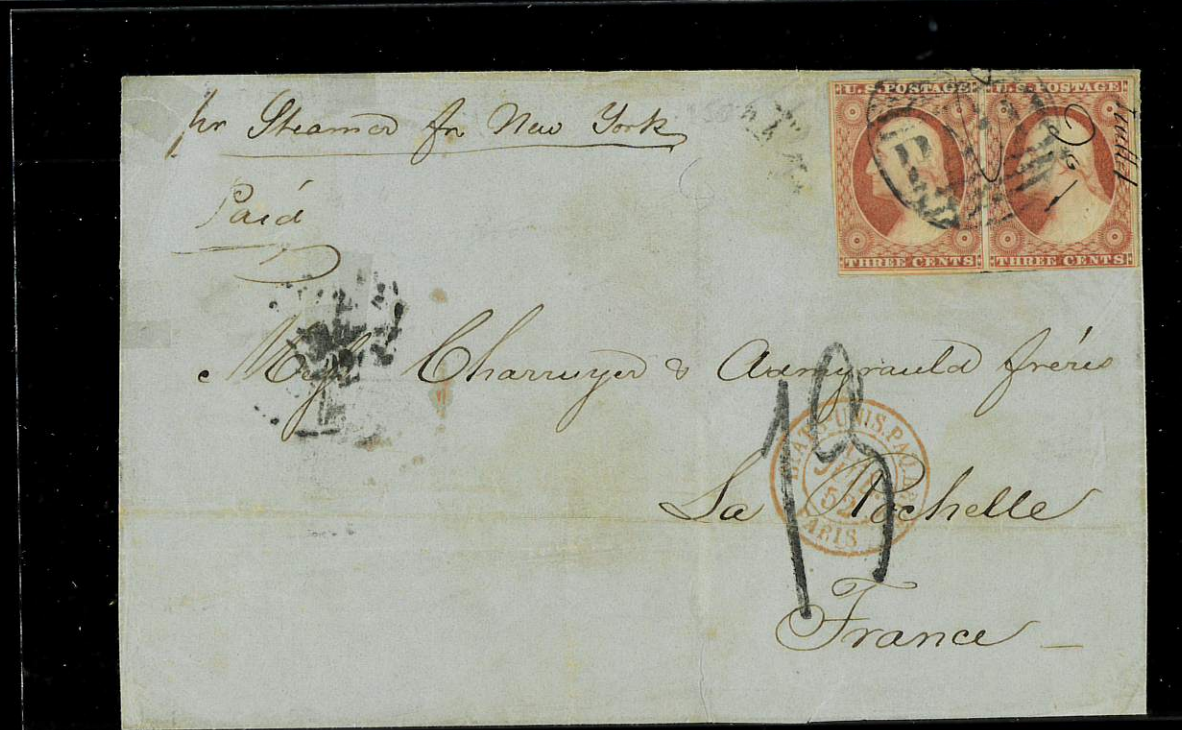 pr Steamer fr New York
Paid
U.S. POSTAGE U.S. POSTAGE
THREE CENTS THREE CENTS
Charruyer & Admyrauld frères
13
ETATS-UNIS.PAQ.
52
PARIS
La Rochelle
France